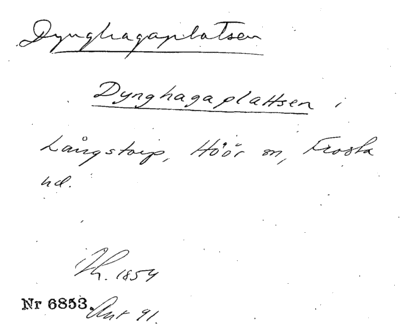 Dynghagaplatsen
Dynghagaplattsen i
Långstorp, Höör sn, Frosta
hd.
Th. 1854
Nr 6853. Ant 91.